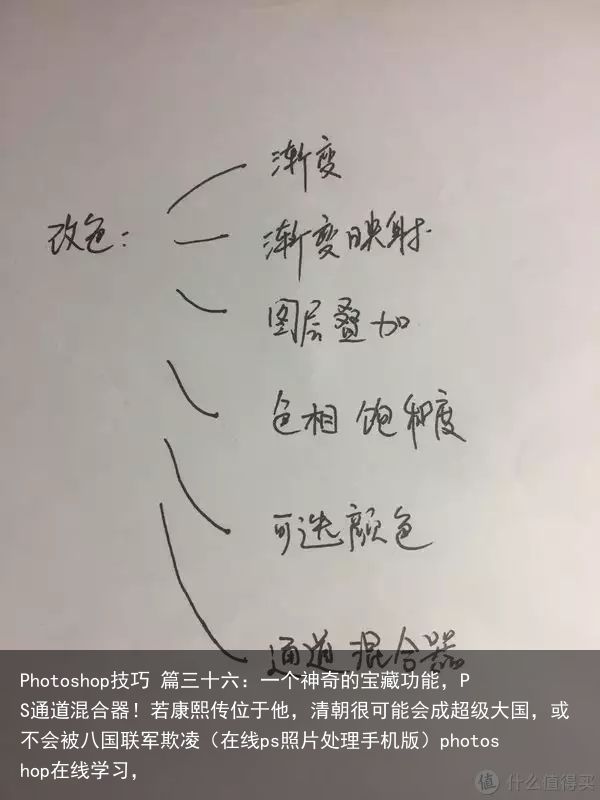 渐变
改色：
渐变映射
图层叠加
色相 饱和度
可选颜色
通道混合器
Photoshop技巧 篇三十六：一个神奇的宝藏功能，P
S通道混合器！若康熙传位于他，清朝很可能会成超级大国，或
不会被八国联军欺凌（在线ps照片处理手机版）photos
hop在线学习，
值 什么值得买